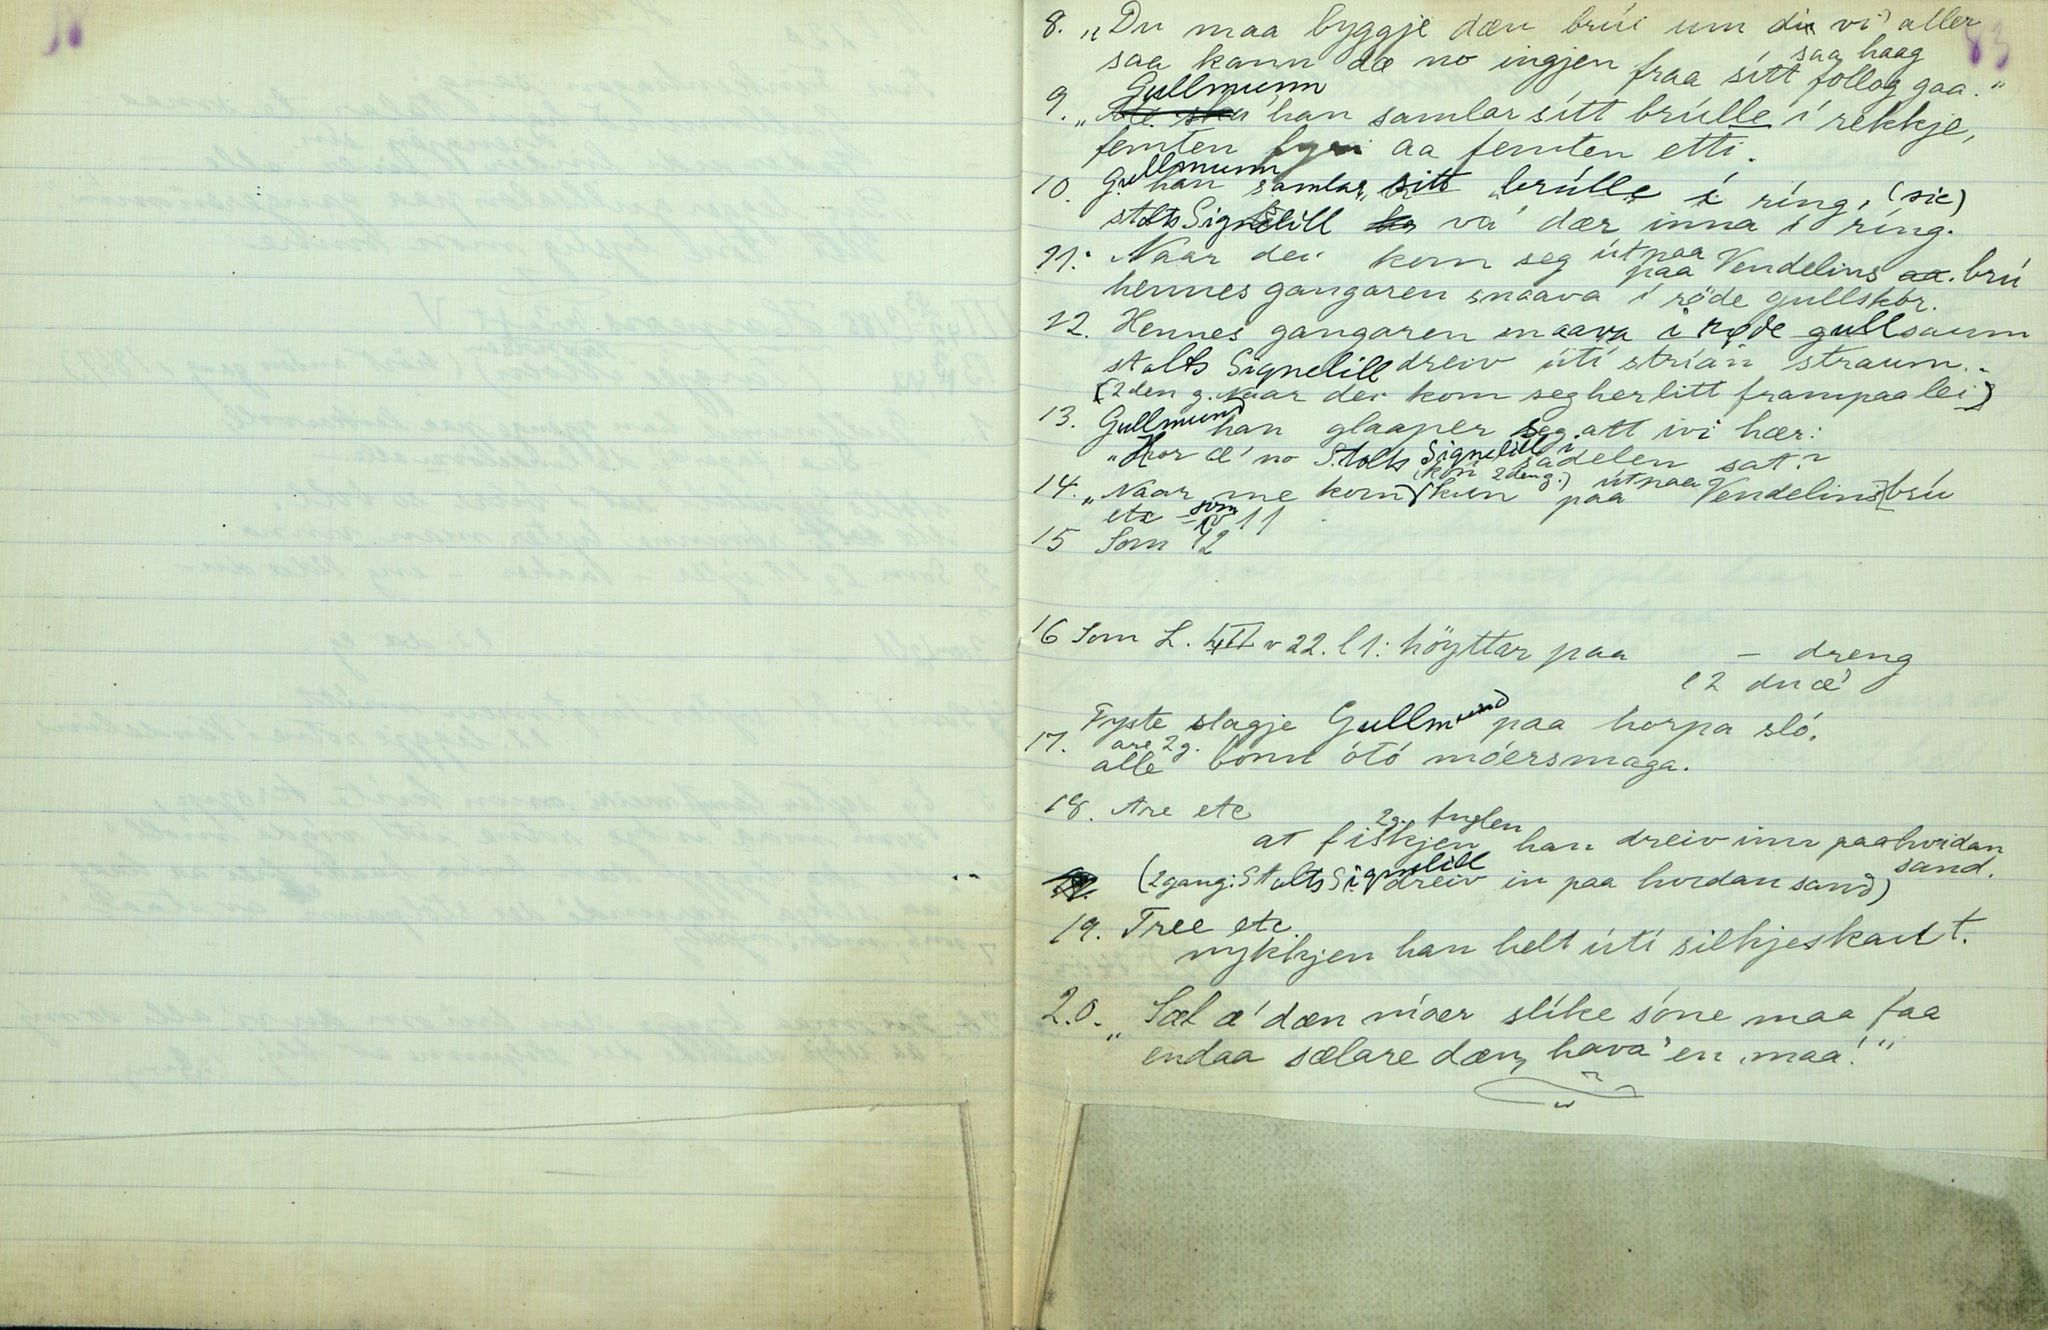 83
8. „Du maa byggje dæn brúi um du vi' aller
saa haag
saa kann dæ no ingjen fraa sitt follog gaa."
Gullmunn
9. „ han samlar sitt brúlle í rekkje,
femten fyri aa femten etti.
10. Gullmunn han samlar „sitt „brúlle" í ríng, (sic)
stolts Signelill va' dær inna í ríng.
11. Naar dei kom seg útpaa paa Vendelins brú
hennes gangaren snaava í röde gullskór.
12. Hennes gangaren snaava i røde gullsaum
stolts Signelill dreiv úti strían straum.
(2den g. Naar dei kom seg her litt frampaa lei)
13. Gullmund han glaaper seg att ivi hær:
„Hor æ' no Stolts Signelill i sadelen sat?
(kon 2den g.) útpaa
14. „Naar me kom kun paa Vendelins brú
etc som v 11
15 Som 12
16 Som L. III v 22. l 1: höyttar paa – dreng
l 2 du æ'
17. Fyste slagje Gullmund paa horpa sló.
are 2g.
alle bonn ótó móersmaga.
18. Are etc
2g. fuglen
at fiskjen han dreiv inn paa hvidan sand.
(2gang: Stolts Signelill dreiv in paa hvidan sand)
19. Tree etc.
nykkjen han helt úti silkjeskaut.
20. „Sæl æ' dæn móer slíke sóne maa faa
endaa sælare dæn, hava' en maa!"